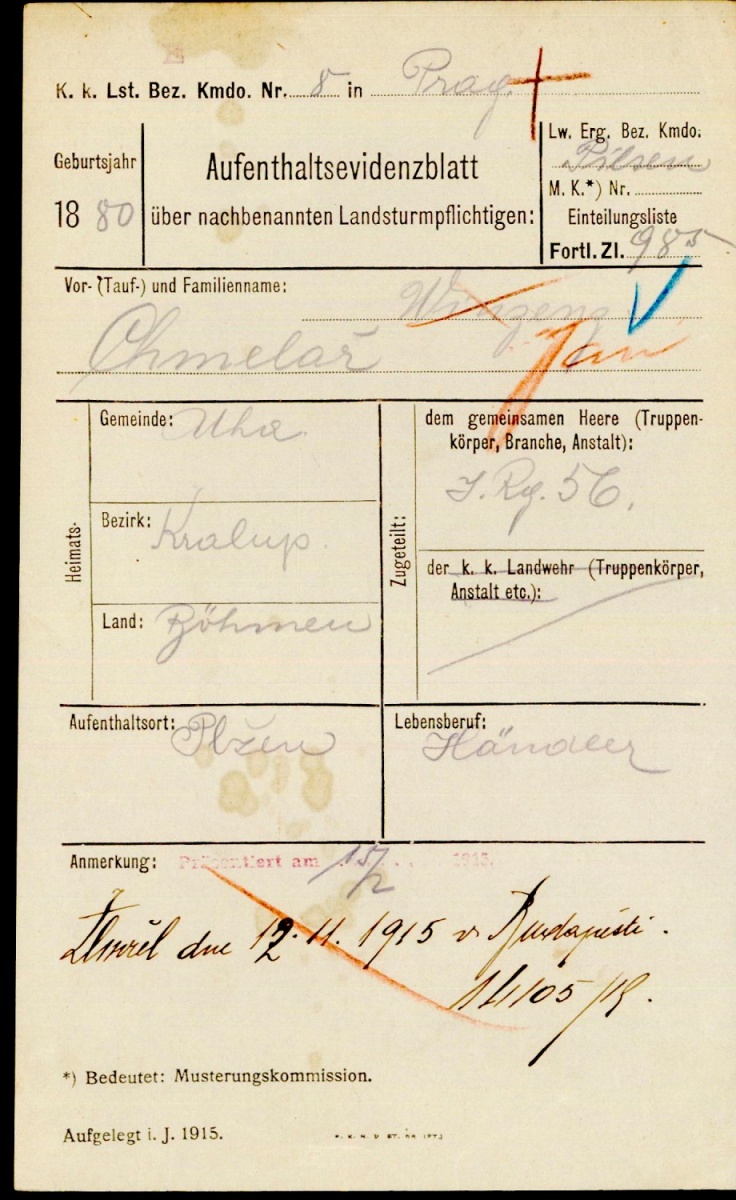 K. k. Lst. Bez. Kmdo. Nr. 8 in Prag
Geburtsjahr
18 80
Aufenthaltsevidenzblatt
über nachbenannten Landsturmpflichtigen:
Lw. Erg. Bez. Kmdo:
Pilsen
M. K.*) Nr.
Einteilungsliste
Fortl. Zl. 985
Vor- (Tauf-) und Familienname:
Winzenz
Chmelař Jan
Heimats-
Gemeinde: Uha
Bezirk: Kralup.
Land: Böhmen
Zugeteilt:
dem gemeinsamen Heere (Truppen-
körper, Branche, Anstalt):
I. Rg. 56.
der k. k. Landwehr (Truppenkörper,
Anstalt etc.):
Aufenthaltsort: Plzen
Lebensberuf: Händler
Anmerkung: Präsentiert am 15/2 1915.
Zemřel dne 12. 11. 1915 v Budapešti.
14105/18.
*) Bedeutet: Musterungskommission.
Aufgelegt i. J. 1915.